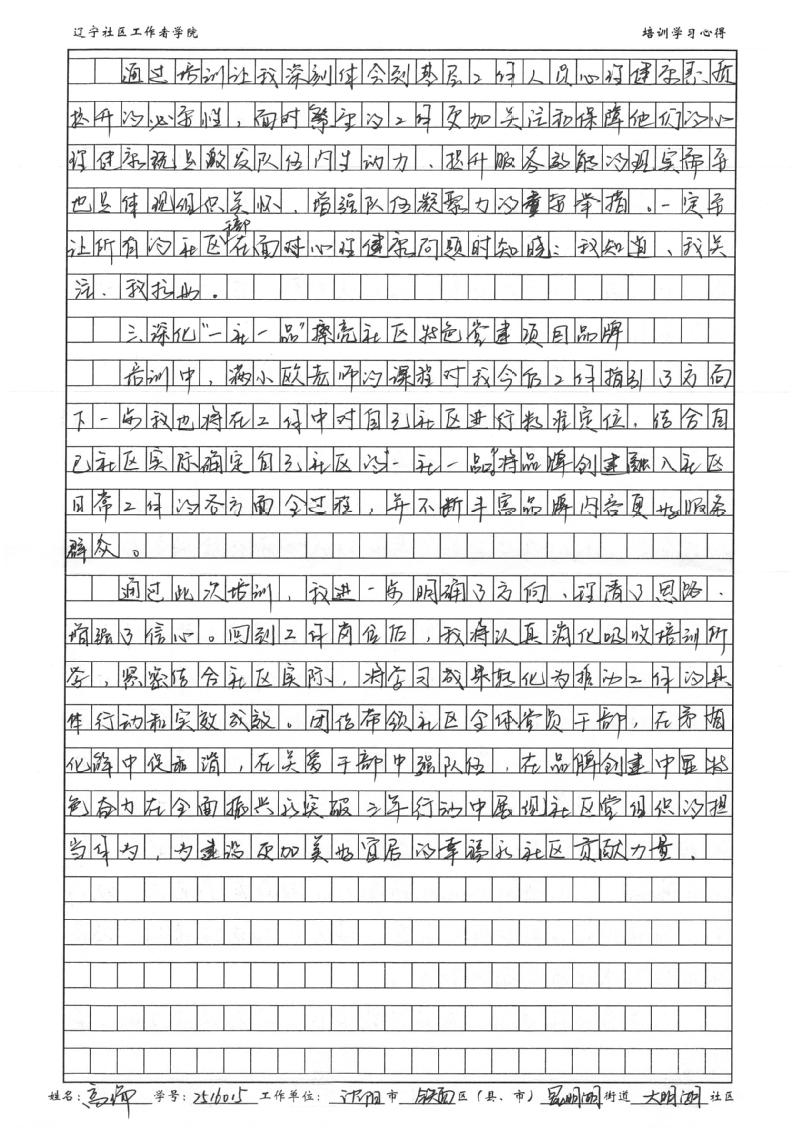 辽宁社区工作者学院 培训学习心得
通过培训让我深刻体会到基层工作人员心理健康素质
提升的必要性，面对繁重的工作更加关注和保障他们的心
理健康就是激发队伍内生动力、提升服务效能的现实需要
也是体现组织关怀、增强队伍凝聚力的重要举措。一定要
让所有的社区干部在面对心理健康问题时知晓：我知道、我关
注、我拉手。
三、深化“一社一品”擦亮社区特色党建项目品牌
培训中，满小欧老师的课程对我今后工作指引了方向
下一步我也将在工作中对自己社区进行精准定位，结合自
己社区实际确定自己社区的“一社一品”将品牌创建融入社区
日常工作的各方面全过程，并不断丰富品牌内容更好服务
群众。
通过此次培训，我进一步明确了方向、理清了思路、
增强了信心。回到工作岗位后，我将认真消化吸收培训所
学，紧密结合社区实际，将学习成果转化为推动工作的具
体行动和实效成效。团结带领社区全体党员干部，在矛盾
化解中促和谐，在关爱干部中强队伍，在品牌创建中显特
色奋力在全面振兴新突破三年行动中展现社区党组织的担
当作为，为建设更加美好宜居的幸福永社区贡献力量。
姓名：高 学号：2516015 工作单位：沈阳市 铁西区（县、市） 昆明湖街道 大明湖社区